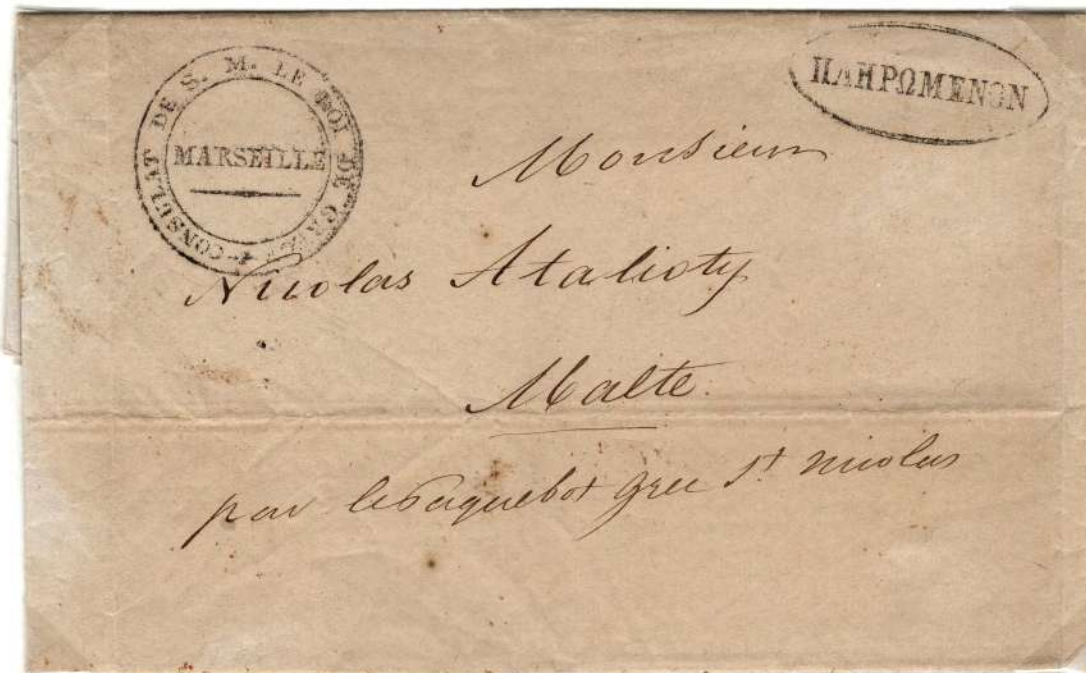 CONSULAT DE S. M. LE ROI DE GRÈCE
MARSEILLE
ΠΛΗΡΩΜΕΝΟΝ
Monsieur
Nicolas Statioty
Malte.
par le Paquebot grec St nicolas